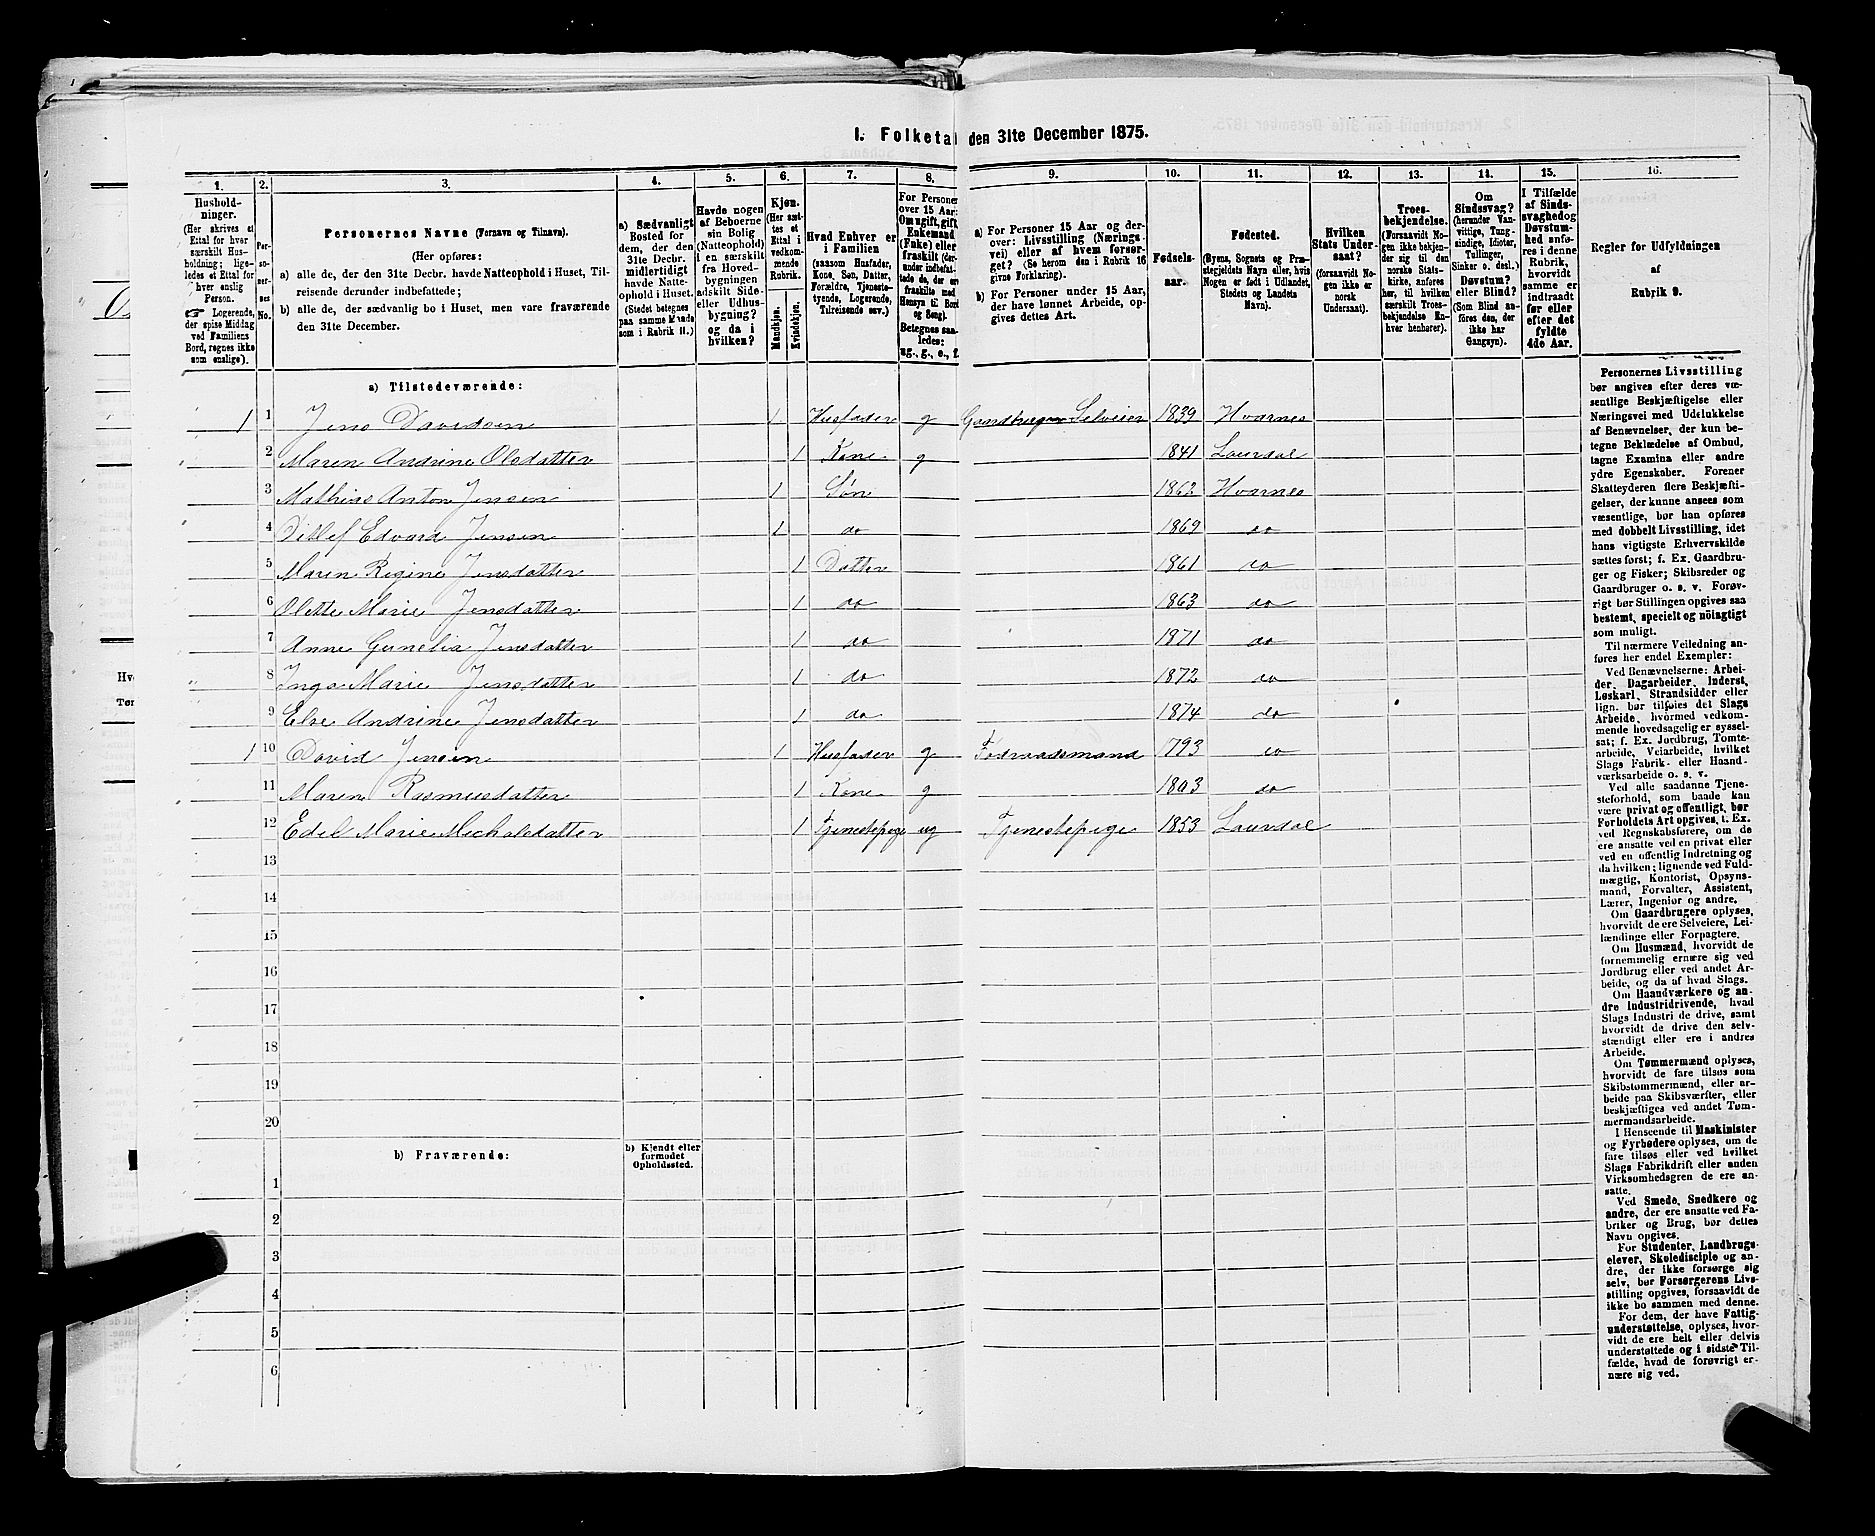 I. Folketal den 31te December 1875.
1. 2. 3. 4. 5. 6. 7. 8. 9. 10. 11. 12. 13. 14. 15. 16.
Hushold-
ninger.
(Her skrives et
Ettal for hver
særskilt Hus-
holdning; lige-
ledes et Ettal for
hver enslig
Person.
☞ Logerende,
der spise Middag
ved Familiens
Bord, regnes ikke
som enslige).
Per-
so-
ner-
nes
No.
Personernes Navne (Fornavn og Tilnavn).
(Her opføres:
a) alle de, der den 31te Decbr. havde Natteophold i Huset, Til-
reisende derunder indbefattede;
b) alle de, der sædvanlig bo i Huset, men vare fraværende
den 31te December.
a) Sædvanligt
Bosted for
dem, der den
31te Decbr.
midlertidigt
havde Natte-
ophold i Huset.
(Stedet betegnes
paa samme Maade
som i Rubrik 11.)
Havde nogen
af Beboerne
sin Bolig
(Natteophold)
i en særskilt
fra Hoved-
bygningen
adskilt Side-
eller Udhus-
bygning?
og da i
hvilken?
Kjøn.
(Her sæt-
tes et
Ettal i
vedkom-
mende
Rubrik.
Mandkjøn.
Kvindekjøn.
Hvad Enhver er
i Familien
(saasom Husfader,
Kone, Søn, Datter,
Forældre, Tjeneste-
tyende, Logerende,
Tilreisende osv.)
For Personer
over 15 Aar:
Om ugift, gift,
Enkemand
(Enke) eller
fraskilt (der-
under indbefat-
tede de, der ere
fraskilte med
Hensyn til Bord
og Seng).
Betegnes saa-
ledes:
ug., g., e., f.
a) For Personer 15 Aar og der-
over: Livsstilling (Nærings-
vei) eller af hvem forsør-
get? (Se herom den i Rubrik 16
givne Forklaring).
b) For Personer under 15 Aar,
der have lønnet Arbeide, op-
gives dettes Art.
Fødsels-
aar.
Fødested.
(Byens, Sognets og Præ-
stegjeldets Navn eller, hvis
Nogen er født i Udlandet,
Stedets og Landets
Navn).
Hvilken
Stats Under-
saat?
(foraavidt No-
gen ikke er
norsk
Undersaat).
Troes-
bekjendelse.
(Forsaavidt No-
gen ikke bekjen-
der sig til den
norske Stats-
kirke, anføres
her, til hvilken
særskilt Troes-
bekjendelse En-
hver henhører).
Om
Sindssvag?
(herunder Van-
vittige, Tung-
sindige, Idioter,
Tullinger,
Sinker o. desl.)
Døvstum?
eller Blind?
(Som Blind an-
føres den, der
ikke har
Gangsyn).
I Tilfælde
af Sinds-
svaghed og
Døvstum-
hed anfø-
res i denne
Rubrik,
hvorvidt
samme er
indtraadt
før eller
efter det
fyldte
4de Aar.
Regler for Udfyldningen
af
Rubrik 9.
a) Tilstedeværende:
1 1 Jens Davidsen 1 Husfader g Gaardbruger Selveier 1839 Hvarnes
2 Maren Andrine Olsdatter 1 Kone g 1841 Laurdal
3 Mathias Anton Jensen 1 Søn 1862 Hvarnes
4 Ditlef Edvard Jensen 1 do 1869 do
5 Maren Regine Jensdatter 1 Datter 1861 do
6 Olette Marie Jensdatter 1 do 1863 do
7 Anne Gunelia Jensdatter 1 do 1871 do
8 Inga Marie Jensdatter 1 do 1872 do
9 Else Andrine Jensdatter 1 do 1874 do
1 10 David Jensen 1 Husfader g Föderaadsmand 1793 do
11 Maren Rasmusdatter 1 Kone g 1803 do
12 Edel Marie Micholsdatter 1 Tjenestepige ug Tjenestepige 1853 Laurdal
13
14
15
16
17
18
19
20
b) Fraværende:
b) Kjendt eller
formodet
Opholdssted.
1
2
3
4
5
6
Personernes Livsstilling
bør angives efter deres væ-
sentlige Beskjæftigelse eller
Næringsvei med Udelukkelse
af Benævnelser, der kun be-
tegne Beklædelse af Ombud,
tagne Examina eller andre
ydre Egenskaber. Forener
Skatteyderen flere Beskjæfti-
gelser, der kunne ansees som
væsentlige, bør han opføres
med dobbelt Livsstilling, idet
hans vigtigste Erhvervskilde
sættes først; f. Ex. Gaardbru-
ger og Fisker; Skibsreder og
Gaardbruger o. s. v. Forøv-
rigt bør Stillingen opgives saa
bestemt, specielt og nöiagtigt
som muligt.
Til nærmere Veiledning an-
føres her endel Exempler:
Ved Benævnelserne: Arbei-
der, Dagarbeider, Inderst,
Løskarl, Strandsidder eller
lign. bør tilføies det Slags
Arbeide, hvormed vedkom-
mende hovedsagelig er syssel-
sat; f. Ex. Jordbrug, Tomte-
arbeide, Veiarbeide, hvilket
Slags Fabrik- eller Haand-
værksarbeide o. s. v.
Ved alle saadanne Tjene-
steforhold, som baade kan
være privat og offentligt, bør
Forholdets Art opgives, t. Ex.
ved Regnskabsførere, om de
ere ansatte ved en privat eller
ved en offentlig Indretning og
da hvilken; lignende ved Fuld-
mægtig, Kontorist, Opsyns-
mand, Forvalter, Assistent,
Lærer, Ingeniør og andre.
Om Gaardbrugere oplyses,
hvorvidt de ere Selveiere, Lei-
lændinge eller Forpagtere.
Om Husmænd, hvorvidt de
fornemmelig ernære sig ved
Jordbrug eller ved andet Ar-
beide, og da af hvad Slags.
Om Haandværkere og an-
dre Industridrivende, hvad
Slags Industri de drive, samt
hvorvidt de drive den selv-
stændigt eller ere i andres
Arbeide.
Om Tømmermænd oplyses,
hvorvidt de fare tilsøs som
Skibstømmermænd, eller ar-
beide paa Skibsværfter, eller
beskjæftiges ved andet Tøm-
mermandsarbeide.
I Henseende til Maskinister
og Fyrbødere oplyses, om de
fare tilsøs eller ved hvilket
Slags Fabrikdrift eller anden
Virksomhedsgren de ere an-
satte.
Ved Smede, Snedkere og
andre, der ere ansatte ved Fa-
briker og Brug, bør dettes
Navn opgives.
For Studenter, Landbrugs-
elever, Skoledisciple og an-
dre, der ikke forsørge sig
selv, bør Forsørgerens Livs-
stilling opgives, forsaavidt de
ikke bo sammen med denne.
For dem, der have Fattig-
understøttelse, oplyses, hvor-
vidt de ere helt eller delvis
understøttede og i sidste Til-
fælde, hvad de forøvrigt er-
nære sig ved.